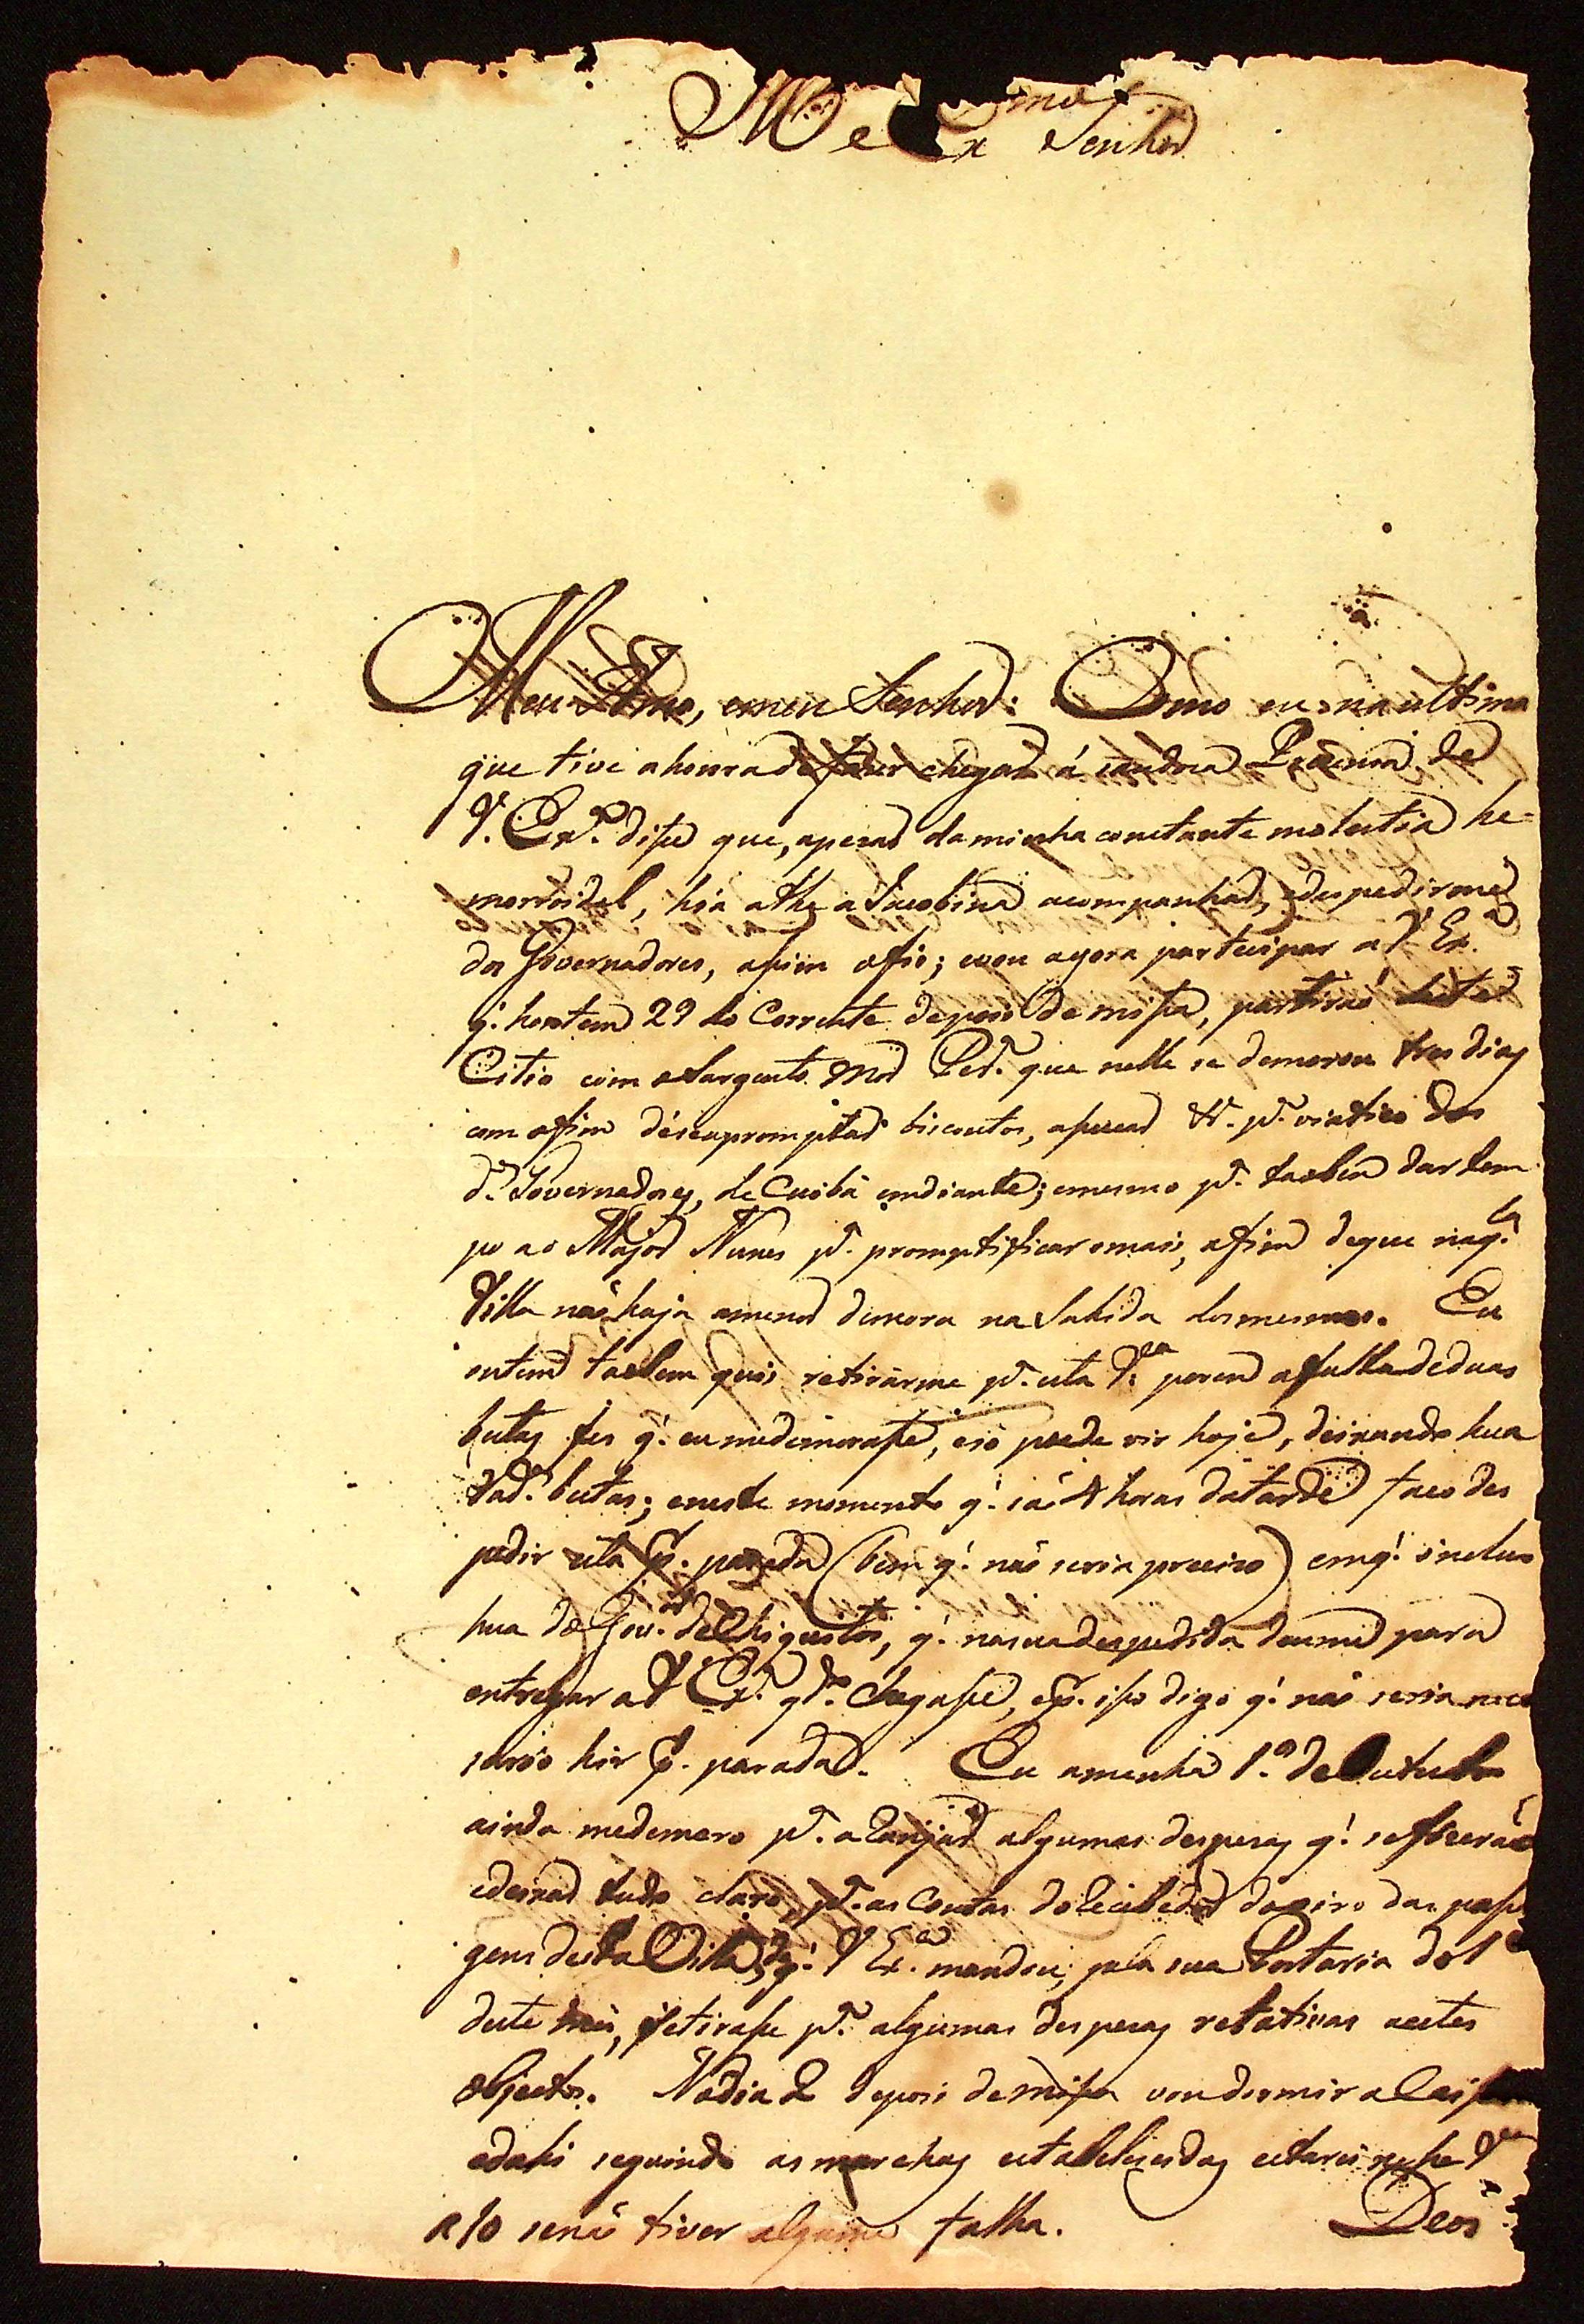 Illmo e Exmo Senhor
Meu Amo, emeu Senhor: Como eu na ultima
que tive ahonra de fazer chegar á Prezença de
V. Exa. diſse que, apezar da minha constante molestia he=
morroidal, hia athe a Jacobina acompanhar, edespedirme
dos Governadores, aſsim ofis; evou agora participar a V Exa.
q.' hontem 29 do Corrente depois de miſsa, partiraõ deste
Citio com o Sargento Mor que nelle se demorou tres dias
com ofim biscoutos, aſsucar &a. pa. viatico dos
ds. Governadores, de Cuibá emdiante; emesmo pa. taobem dar tem
po ao Major Nunes pa. promptificar omais, afim deque naqla.
Villa naõ haja amenor demora na Sahida dosmesmos. Eu
ontem taobem quis retirarme pa. esta Va. porem afalta deduas
bestas fes q.' eu medemoraſse, esó pude vir hoje, deixando hua
das das. bestas; eneste momento q.' saõ 4 horas datarde faco des
pedir esta p. parada (bem q.' naõ seria preciso) emq.' incluo
hua do Govor. de Chiquitos, q.' nasuadespedida deume para
entregar a V Exa. qdo. chegaſse, ep. iſso digo q.' naõ seria nece
sario hir p. parada. Eu amenhã 1.º de Outubro
ainda medemoro pa. aranjar algumas despezas q.' sefizeraõ
edeixar tudo claro, pa. as Contas do Recebedor das paſsa
gens desta Villa, q.' V Exa. mandou, pela sua Portaria do 1º
deste mes, setiraſse pa. algumas despezas relativas aestes
objectos. Nodia 2 depois demiſsa vou dormir a
edahi seguindo asmarchas estabelecidas estarei neſsa Va
a 10 senaõ tiver alguma falha. Deos